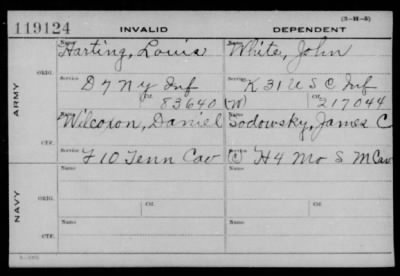 (3-H-5)
119124 INVALID DEPENDENT
ARMY
ORIG.
Name Harting, Louis
Name White, John
Service D 7 N y Inf
Service K 31 U S C Inf
Ctf. 83640
(W) Ctf. 217044
CTF.
Name Wilcoxon, Daniel
Name Sodowsky, James C
Service F 10 Tenn Cav
(C) Service H 4 Mo S M Cav
NAVY
ORIG.
Name
Name
Service
Service
Ctf.
Ctf.
CTF.
Name
Name